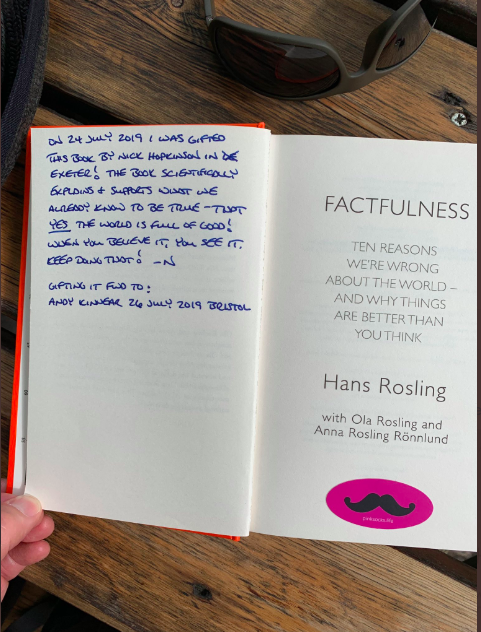 ON 24 JULY 2019 I WAS GIFTED
THIS BOOK BY NICK HOPKINSON IN
EXETER! THE BOOK SCIENTIFICALLY
EXPLAINS + SUPPORTS WHAT WE
ALREADY KNOW TO BE TRUE – THAT
YES THE WORLD IS FULL OF GOOD!
WHEN YOU BELIEVE IT, YOU SEE IT.
KEEP DOING THAT! –N
GIFTING IT FWD TO:
ANDY KINNEAR 26 JULY 2019 BRISTOL
FACTFULNESS
TEN REASONS
WE'RE WRONG
ABOUT THE WORLD –
AND WHY THINGS
ARE BETTER THAN
YOU THINK
Hans Rosling
with Ola Rosling and
Anna Rosling Rönnlund
pinksocks.life